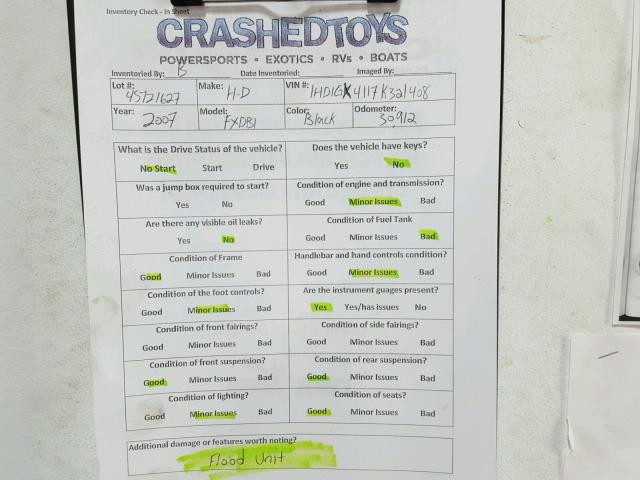 Inventory Check - In Sheet
CRASHEDTOYS
POWERSPORTS • EXOTICS • RVs • BOATS
Inventoried By: B Date Inventoried: Imaged By:
Lot #: 45721627 Make: H-D VIN #: 1HD1GX4117K321408
Year: 2007 Model: FXDBI Color: Black Odometer: 30,912
What is the Drive Status of the vehicle? Does the vehicle have keys?
No Start Start Drive Yes No
Was a jump box required to start? Condition of engine and transmission?
Yes No Good Minor Issues Bad
Are there any visible oil leaks? Condition of Fuel Tank
Yes No Good Minor Issues Bad
Condition of Frame Handlebar and hand controls condition?
Good Minor Issues Bad Good Minor Issues Bad
Condition of the foot controls? Are the instrument guages present?
Good Minor Issues Bad Yes Yes/has issues No
Condition of front fairings? Condition of side fairings?
Good Minor Issues Bad Good Minor Issues Bad
Condition of front suspension? Condition of rear suspension?
Good Minor Issues Bad Good Minor Issues Bad
Condition of lighting? Condition of seats?
Good Minor Issues Bad Good Minor Issues Bad
Additional damage or features worth noting?
Flood Unit